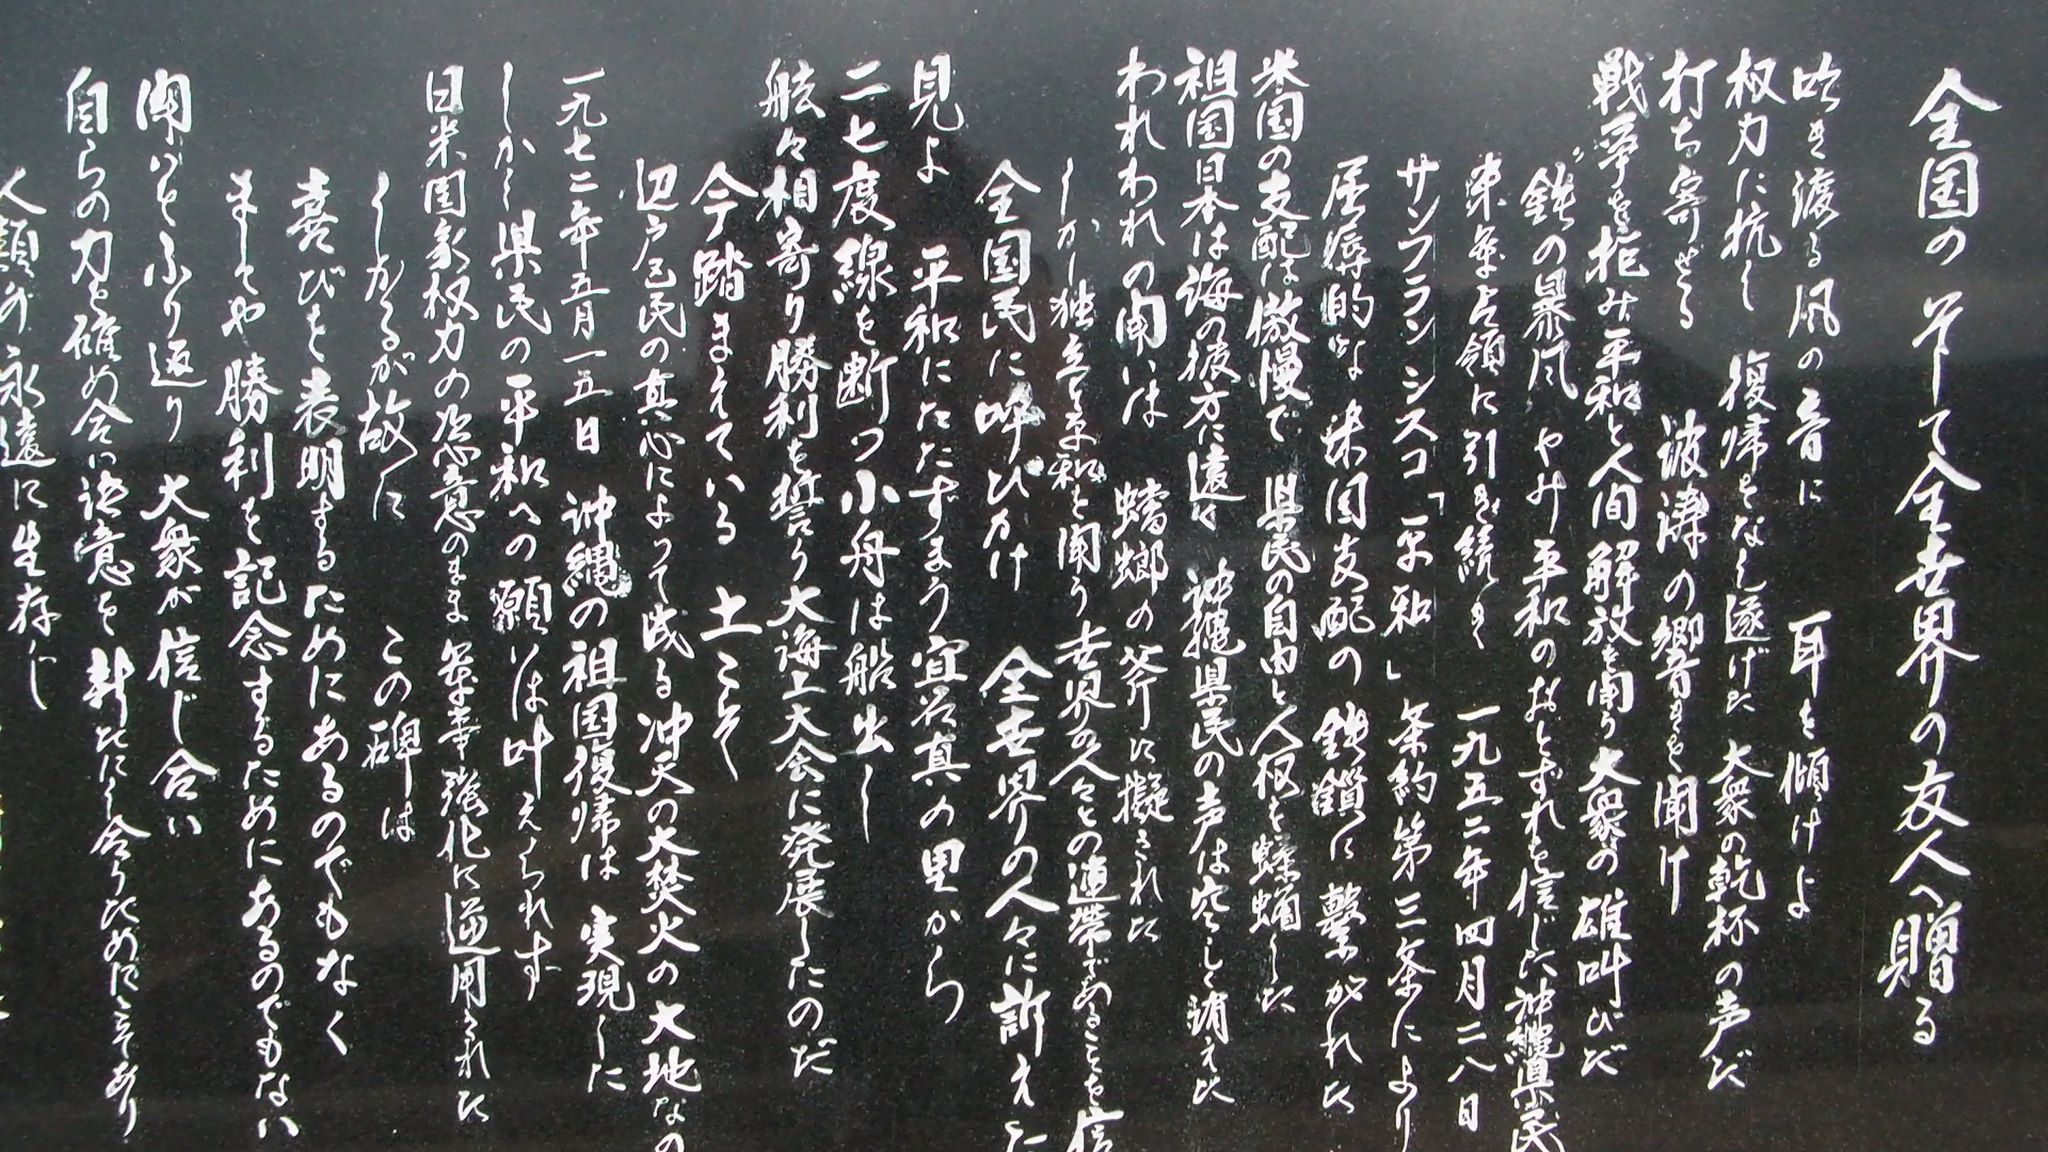 全国の そして全世界の友人へ贈る
吹き渡る風の音に 耳を傾けよ
权力に抗し 復帰をなし遂げた 大衆の乾杯の声だ
打ち寄せる 波濤の響きを聞け
戦争を拒み平和と人間解放を闘う大衆の雄叫びだ
〝鉄の暴風〟やみ平和のおとずれを信じた沖縄県民
米軍占領に引き続き 一九五二年四月二八日
サンフランシスコ「平和」条約第三条により
屈辱的な米国支配の鉄鎖に繋がれた
米国の支配は傲慢で 県民の自由と人权を蹂躙した
祖国日本は海の彼方に遠く 沖縄県民の声は空しく消えた
われわれの闘いは 蟷螂の斧に擬された
しかし独立と平和を闘う世界の人々との連帯であることを信
全国民に呼びかけ 全世界の人々に訴えた
見よ 平和にたたずまう宜名真の里から
二七度線を断つ小舟は船出し
舷々相寄り勝利を誓う大海上大会に発展したのだ
今踏まえている 土こそ
辺戸区民の真心によって成る沖天の大焚火の大地なの
一九七二年五月一五日 沖縄の祖国復帰は 実現した
しかし県民の平和への願いは叶えられず
日米国家权力の恣意のまま軍事強化に逆用された
しかるが故に この碑は
喜びを表明するためにあるのでもなく
ましてや勝利を記念するためにあるのでもない
闘いをふり返り 大衆が信じ合い
自らの力を確め合い決意を新たにし合うためにこそあり
人類が 永遠に生存し